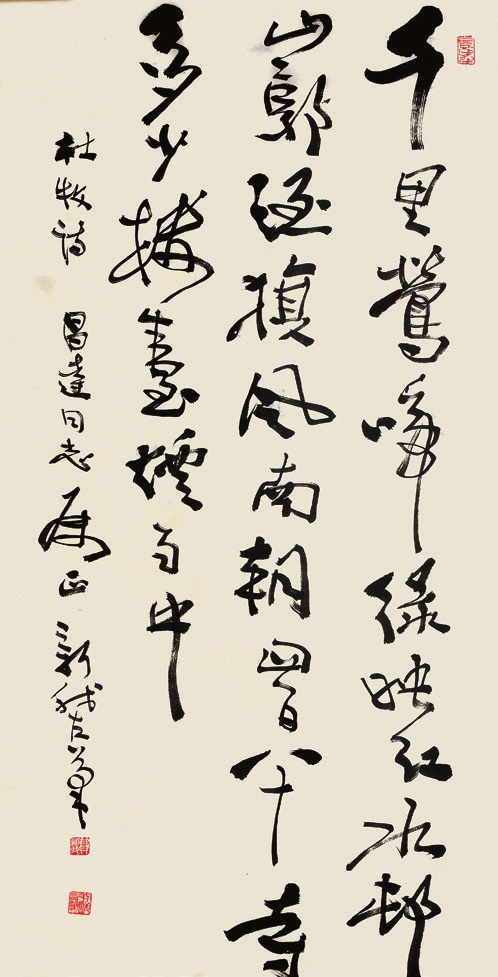 千里鶯啼綠映紅水邨
山郭酒旗風南朝四百八十寺
多少樓臺煙雨中
杜牧詩 昌達同志屬正 新我左筆